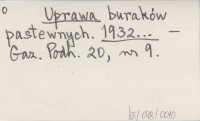 Uprawa buraków
pastewnych. 1932... —
Gaz. Podh. 20, nr 9.